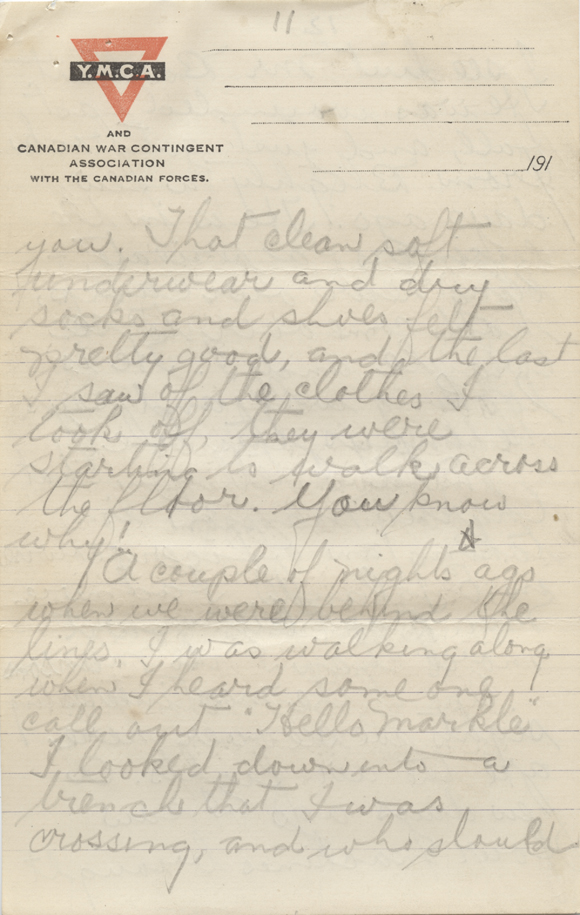 11
Y.M.C.A.
AND
CANADIAN WAR CONTINGENT
ASSOCIATION
WITH THE CANADIAN FORCES.
191
you. That clean soft
underwear and dry
socks and shoes felt
pretty good, and the last
I saw of the clothes I
took off, they were
starting to walk across
the floor. You know
why!
A couple of nights ago
when we were behind the
lines, I was walking along
when I heard some one
call out "Hello Markle"
I looked down into a
trench that I was
crossing, and who should